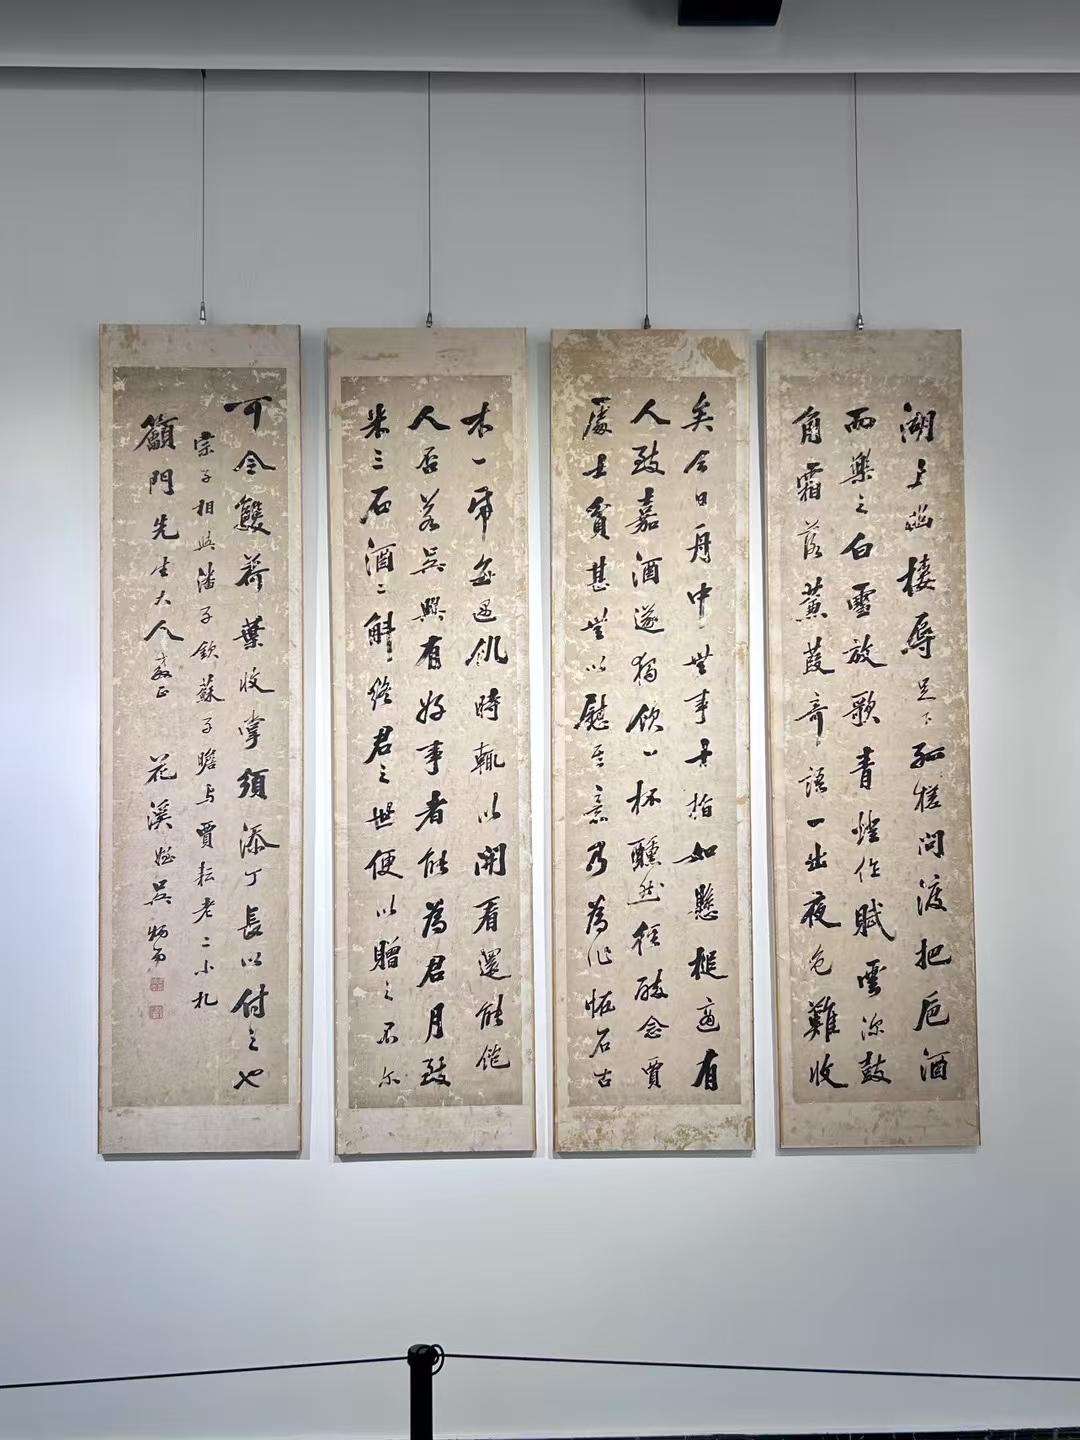 湖上幽棲辱足下孤槎問渡把卮酒
而樂之白雪放歌青燈作賦雲深鼓
角霜落蒹葭奇語一出夜色難收
矣今日舟中無事十指如懸槌適有
人致嘉酒遂獨飲一杯醺然徑醉念賈
處士貧甚無以慰其意乃為作怪石古
木一帋每遇飢時輒以開看還能飽
人否若吳興有好事者能為君月致
米三石酒二斛終君之世便以贈之不尔
可令雙荷葉收掌須添丁長以付之也
宗子相與潘子欽蘇子瞻与賈耘老二小札
籲門先生大人教正 花溪姪吳